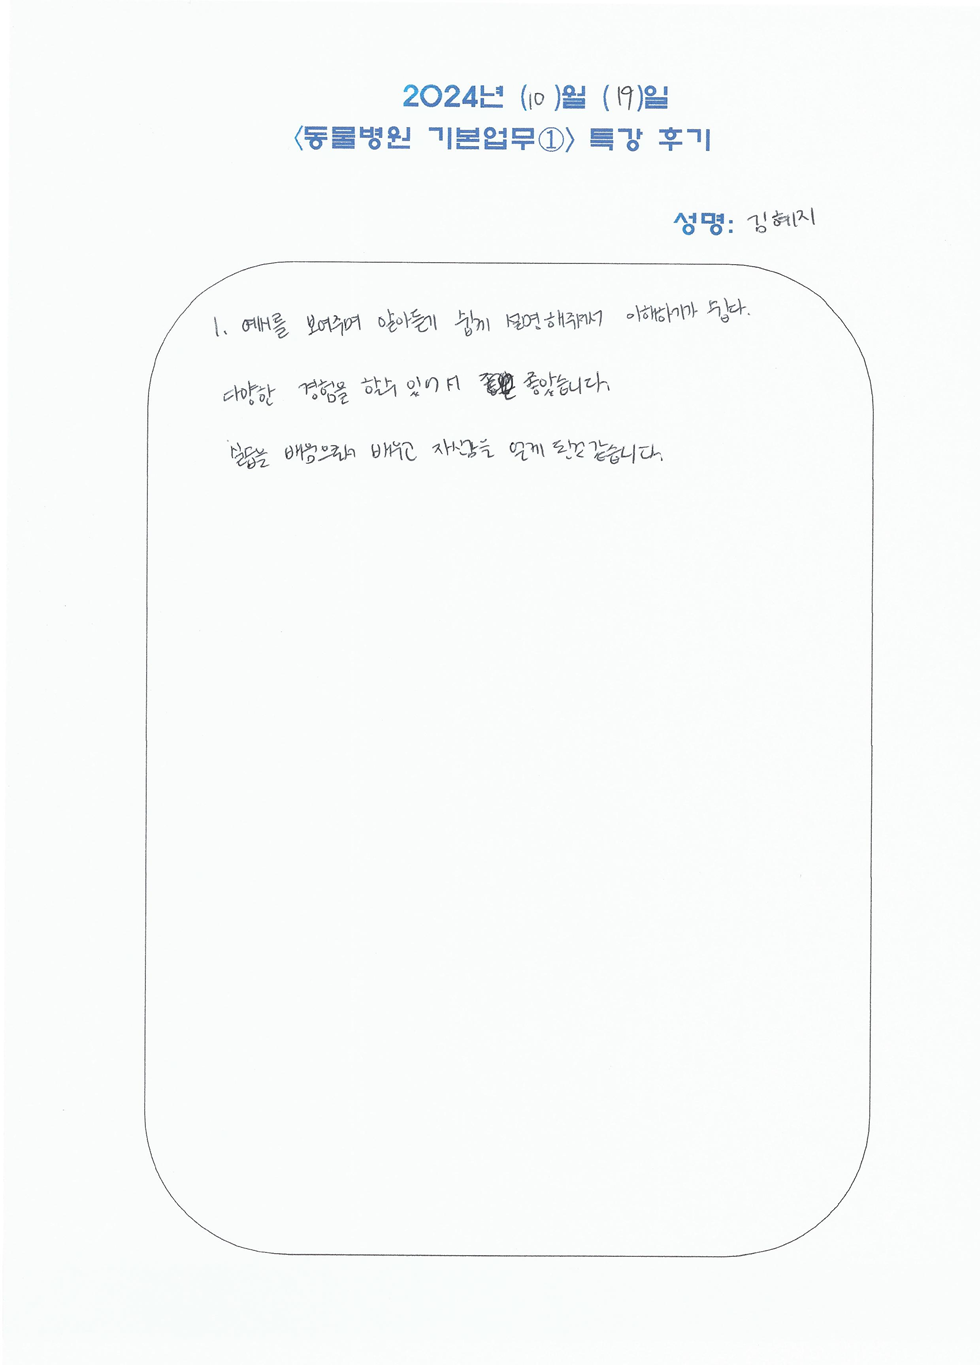 2024년 (10)월 (19)일
<동물병원 기본업무①> 특강 후기
성명: 김혜지
1. 예시를 보여주며 알아듣기 쉽게 설명해주셔서 이해하기가 쉽다.
다양한 경험을 할수 있어서 좋았습니다.
실습을 배움으로써 배우고 자신감을 얻게 된것 같습니다.